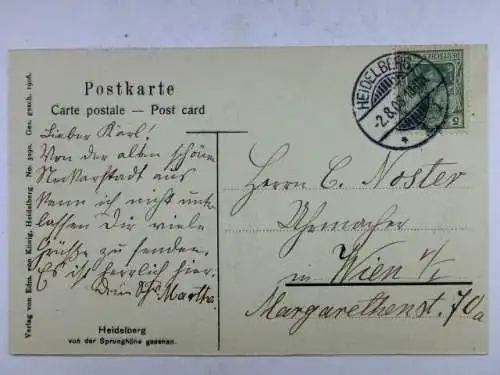 Postkarte
Carte postale — Post card
Lieber Karl!
Von der alten schönen
Neckarstadt aus
kann ich nicht unter
lassen Dir viele
Grüße zu senden.
Es ist herrlich hier.
Martha.
Heidelberg
von der Sprunghöhe gesehen.
Verlag von Edm. von König, Heidelberg. No. Ges. gesch. 1906.
HEIDELBERG
-2.8.09
DEUTSCHES
5
Herrn C. Noster
Uhrmacher
in Wien
Margarethenst. 70a